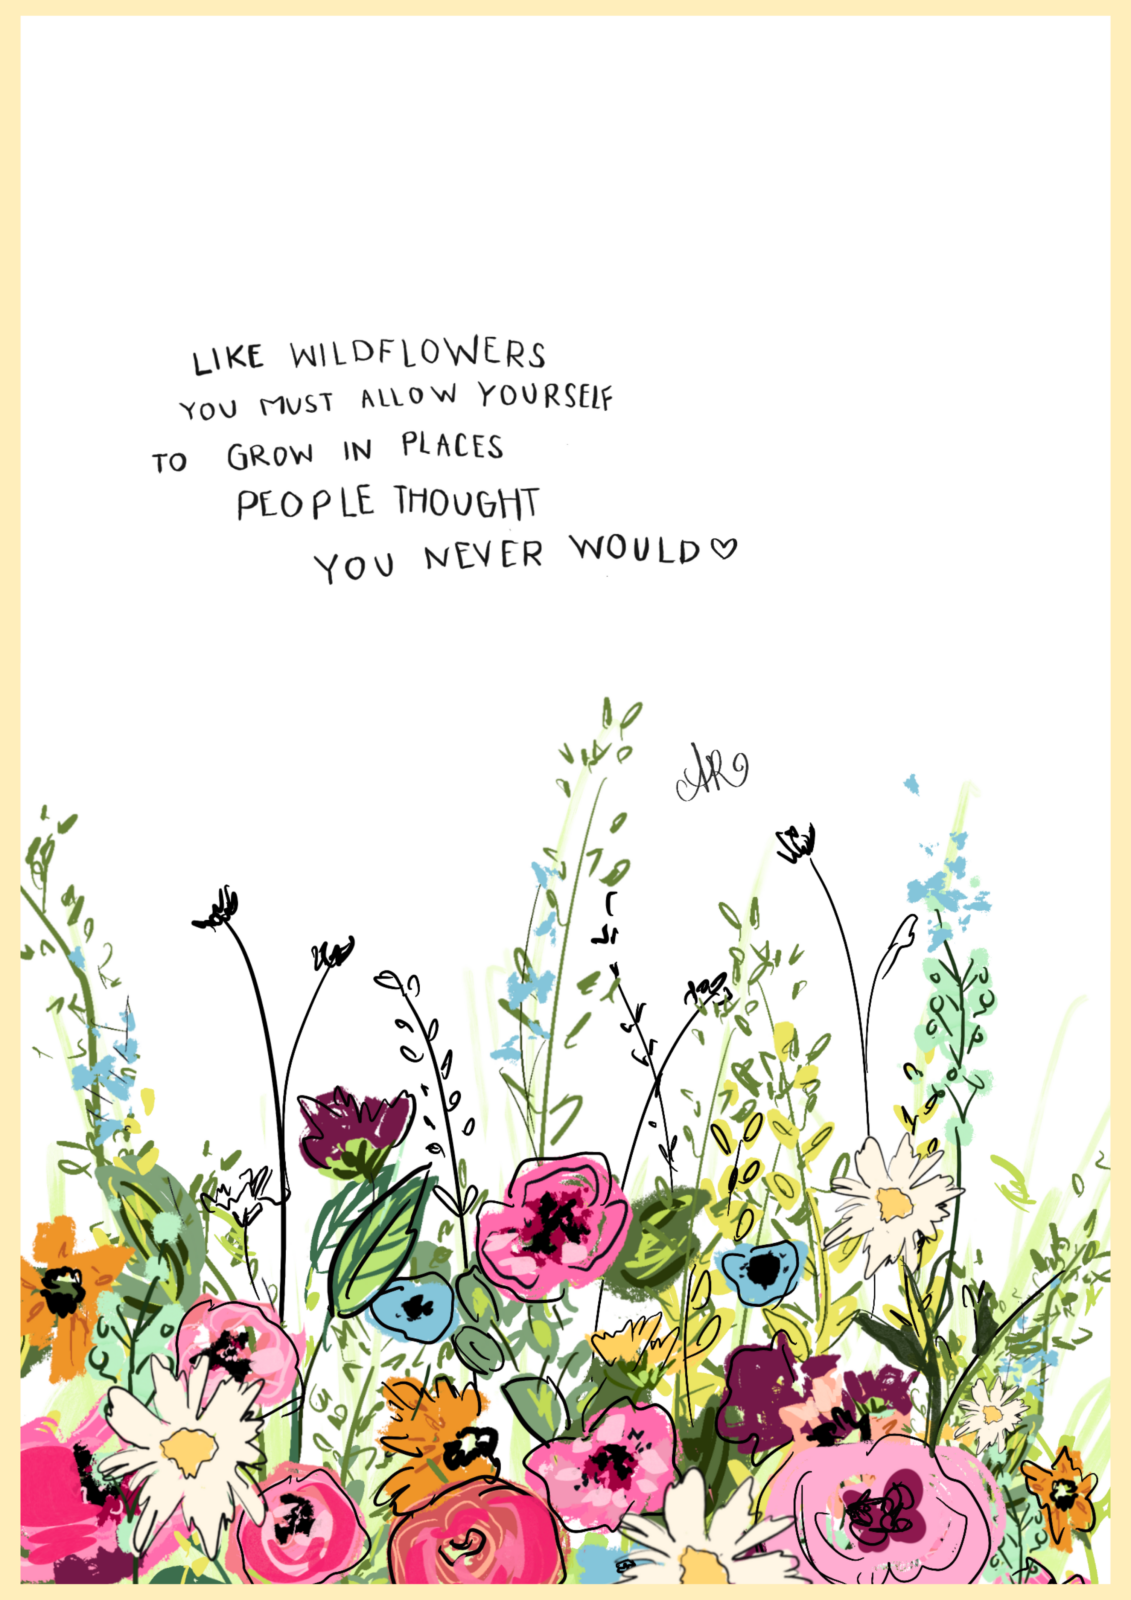 LIKE WILDFLOWERS
YOU MUST ALLOW YOURSELF
TO GROW IN PLACES
PEOPLE THOUGHT
YOU NEVER WOULD♡
AR